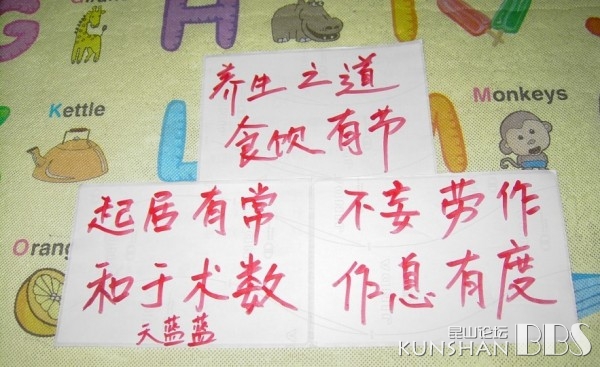 Kettle
Monkeys
Orang
养生之道
食饮有节
起居有常
和于术数
天蓝蓝
不妄劳作
作息有度
昆山论坛
KUNSHAN BBS